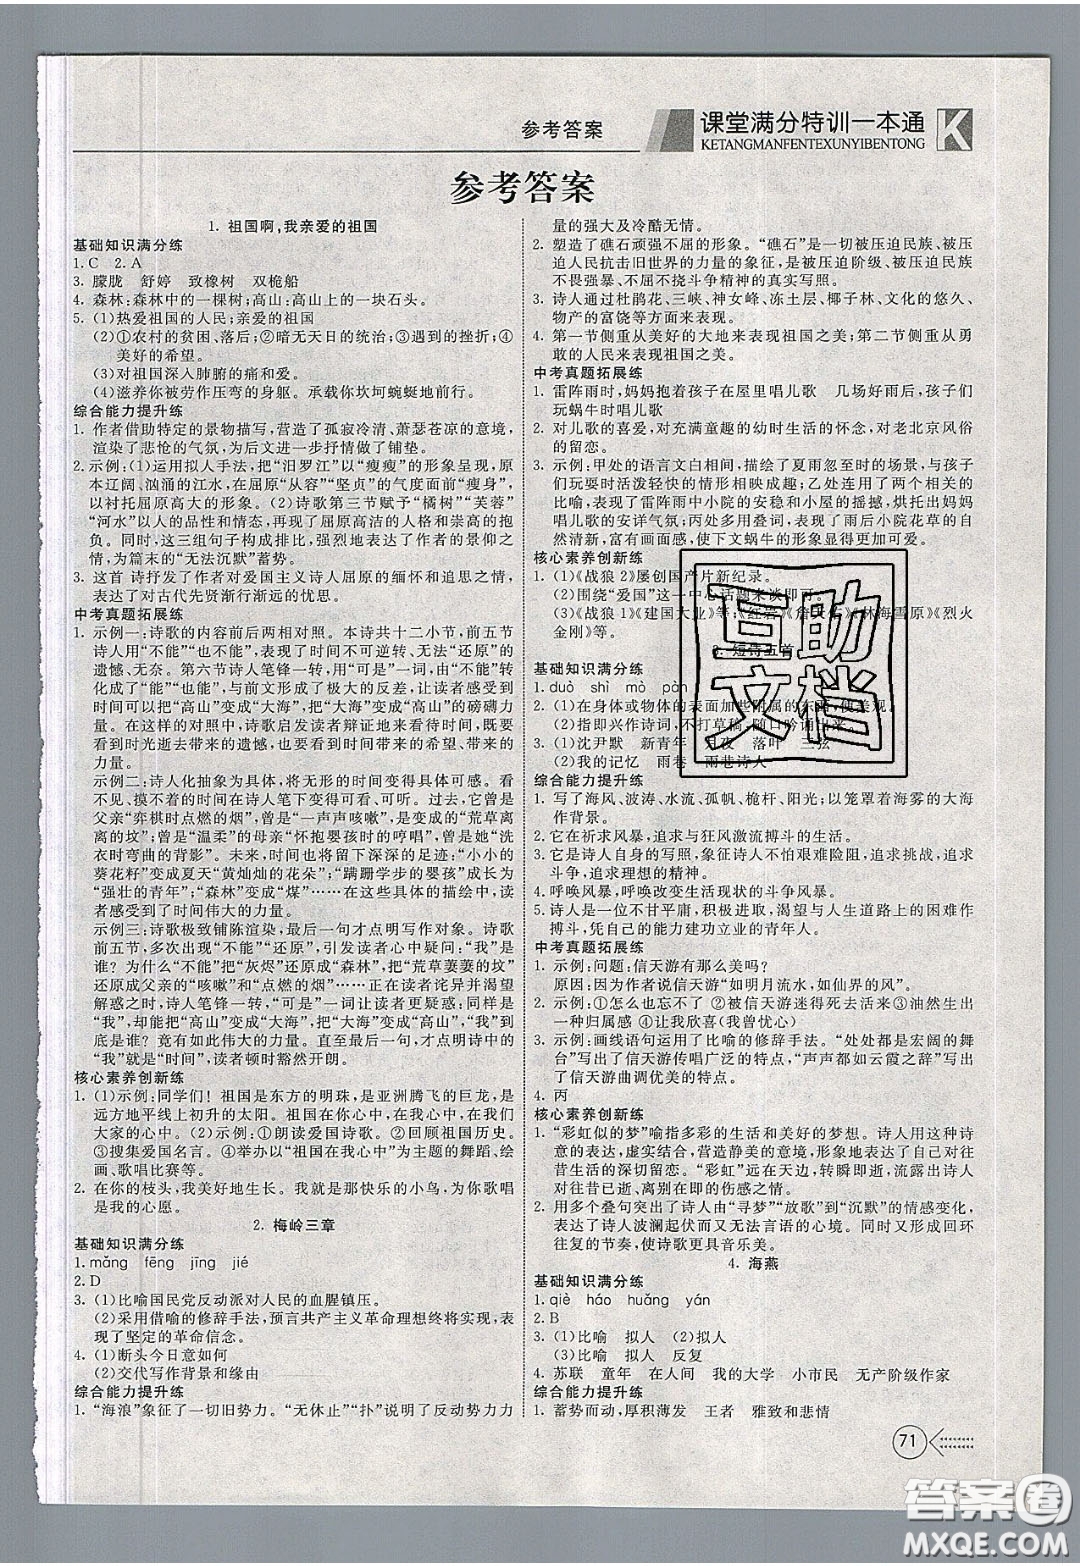 参考答案
课堂满分特训一本通 K
KETANGMANFENTEXUNYIBENTONG
参考答案
1. 祖国啊,我亲爱的祖国
基础知识满分练
1.C 2.A
3. 朦胧 舒婷 致橡树 双桅船
4. 森林:森林中的一棵树;高山:高山上的一块石头。
5. (1)热爱祖国的人民;亲爱的祖国
(2)①农村的贫困、落后;②暗无天日的统治;③遇到的挫折;④
美好的希望。
(3)对祖国深入肺腑的痛和爱。
(4)滋养你被劳作压弯的身躯。承载你坎坷蜿蜒地前行。
综合能力提升练
1. 作者借助特定的景物描写,营造了孤寂冷清、萧瑟苍凉的意境,
渲染了悲怆的气氛,为后文进一步抒情做了铺垫。
2. 示例:(1)运用拟人手法,把“汨罗江”以“瘦瘦”的形象呈现,原
本辽阔、汹涌的江水,在屈原“从容”“坚贞”的气度面前“瘦身”,
以衬托屈原高大的形象。(2)诗歌第三节赋予“橘树”“芙蓉”
“河水”以人的品性和情态,再现了屈原高洁的人格和崇高的抱
负。同时,这三组句子构成排比,强烈表达了作者的景仰之
情,为篇末的“无法沉默”蓄势。
3. 这首 诗抒发了作者对爱国主义诗人屈原的缅怀和追思之情,
表达了对古代先贤渐行渐远的忧思。
中考真题拓展练
1. 示例一:诗歌的内容前后两相对照。本诗共十二小节,前五节
诗人用“不能”“也不能”,表现了时间不可逆转、无法“还原”的
遗憾、无奈。第六节诗人笔锋一转,用“可是”一词,由“不能”转
化成了“能”“也能”,与前文形成了极大的反差,让读者感受到
时间可以把“高山”变成“大海”,把“大海”变成“高山”的磅礴力
量。在这样的对照中,诗歌启发读者辩证地来看待时间,既要
看到时光逝去带来的遗憾,也要看到时间带来的希望、带来的
力量。
示例二:诗人化抽象为具体,将无形的时间变得具体可感。看
不见、摸不着的时间在诗人笔下变得可看、可听。过去,它曾是
父亲“弈棋时点燃的烟”,曾是“一声声咳嗽”,是变成的“荒草萋
离的坟”;曾是“温柔”的母亲“怀抱婴孩时的哼唱”,曾是她“洗衣
时弯曲的背影”。未来,时间也将留下深深的足迹:“小小的
葵花籽”变成夏天“黄灿灿的花朵”;“蹒跚学步的婴孩”成长为
“强壮的青年”;“森林”变成“煤”……在这样的描绘中,读
者感受到了时间伟大的力量。
示例三:诗歌极尽铺陈渲染,最后一句才点明写作对象。诗歌
前五节,多次出现“不能”“还原”,引发读者心中疑问:“我”是
谁?为什么“不能”把“灰烬”还原成“森林”,把“荒草萋萋的坟”
还原成父亲的“咳嗽”和“点燃的烟”……正在读者诧异并渴望
解惑之时,诗人笔锋一转,“可是”一词让读者更疑惑:同样是
“我”,却能把“高山”变成“大海”,把“大海”变成“高山”,“我”到
底是谁?竟有如此伟大的力量。直至最后一句,才点明诗中的
“我”就是“时间”,读者顿时豁然开朗。
核心素养创新练
1. (1)示例:同学们!祖国是东方的明珠,是亚洲腾飞的巨龙,是
远方地平线上初升的太阳。祖国在你心中,在我心中,在我们
大家的心中。(2)示例:①朗读爱国诗歌。②回顾祖国历史。
③搜集爱国名言。④举办以“祖国在我心中”为主题的舞蹈、绘
画、歌唱比赛等。
2. 在你的枝头,我美好地生长。我就是那快乐的小鸟,为你歌唱
是我的心愿。
2. 梅岭三章
基础知识满分练
1. mǎng fēng jīng jié
2. D
3. (1)比喻国民党反动派对人民的血腥镇压。
(2)采用借喻的修辞手法,预言共产主义革命理想终将实现,表
现了坚定的革命信念。
4. (1)断头今日意如何
(2)交代写作背景和缘由
综合能力提升练
1. “海浪”象征了一切旧势力。“无休止”“扑”说明了反动势力力
量的强大及冷酷无情。
2. 塑造了礁石顽强不屈的形象。“礁石”是一切被压迫民族、被压
迫人民抗击旧世界的力量的象征,是被压迫阶级、被压迫民族
不畏强暴、不屈不挠斗争精神的真实写照。
3. 诗人通过杜鹃花、三峡、神女峰、冻土层、椰子林、文化的悠久、
物产的富饶等方面来表现。
4. 第一节侧重从美好的大地来表现祖国之美;第二节侧重从勇
敢的人民来表现祖国之美。
中考真题拓展练
1. 雷阵雨时,妈妈抱着孩子在屋里唱儿歌 几场好雨后,孩子们
玩蜗牛时唱儿歌
2. 对儿歌的喜爱,对充满童趣的幼时生活的怀念,对老北京风俗
的留恋。
3. 示例:甲处的语言文白相间,描绘了夏雨忽至时的场景,与孩子
们玩耍时活泼轻快的情形相映成趣;乙处连用了两个相关的
比喻,写出了雷阵雨中小院的安稳和小屋的摇撼,烘托出妈妈
唱儿歌的安详气氛;丙处多用叠词,表现了雨后小院花草的自然
清新,富有画面感,使下文蜗牛的形象显得更加突出。
核心素养创新练
1. (1)《战狼2》屡创国产片新纪录。
(2)围绕“爱国”这一中心话题来谈即可。
(3)《战狼1》《建国大业》等;《红岩》《詹天佑》《林海雪原》《烈火
金刚》等。
3. 短诗五首
基础知识满分练
1. duò shì mò pàn
2. (1)在身体或物体的表面加些附属的东西,使美观。
(2)指即兴作诗词,不打草稿,随口吟诵出来。
3. (1)沈尹默 新青年 月夜 落叶 三弦
(2)我的记忆 雨巷 雨巷诗人
综合能力提升练
1. 写了海风、波涛、水流、孤帆、桅杆、阳光;以笼罩着海雾的大海
作背景。
2. 它在祈求风暴,追求与狂风激流搏斗的生活。
3. 它是诗人自身的写照,象征诗人不怕艰难险阻,追求挑战,追求斗
争,追求理想的精神。
4. 呼唤风暴,呼唤改变生活现状的斗争风暴。
5. 诗人是一位不甘平庸,积极进取,渴望与人生道路上的困难作
搏斗,凭自己的能力建功立业的青年人。
中考真题拓展练
1. 示例:问题:信天游有那么美吗?
原因:因为作者说信天游“如明月流水,如仙界的风”。
2. 示例:①怎么也忘不了 ②被信天游迷得死去活来③油然生出
一种归属感 ④让我欣喜(我曾忧心)
3. 示例:画线语句运用了比喻的修辞手法。“处处都是宏阔的舞
台”写出了信天游传唱广泛的特点,“声声都如云霞之辞”写出
了信天游曲调优美的特点。
4. 丙
核心素养创新练
1. “彩虹似的梦”喻指多彩的生活和美好的梦想。诗人用这种诗
意的表达,虚实结合,营造静美的意境,表达了诗人自己对往
昔生活的深切留恋。“彩虹”远在天边,转瞬即逝,流露出诗人
对往昔已逝的伤感之情。
2. 用多个叠句突出了诗人由“寻梦”“放歌”到“沉默”的情感变化,
表达了诗人波澜起伏又无法言语的心境。同时又形成回环
往复的节奏,使诗歌更具音乐美。
4. 海燕
基础知识满分练
1. qiè háo huǎng yán
2. B
3. (1)比喻 拟人 (2)拟人
(3)比喻 拟人 反复
4. 苏联 童年 在人间 我的大学 小市民 无产阶级作家
综合能力提升练
1. 蓄势而动,厚积薄发 王者 雅致和悲情
71
互助
文档
答案卷
MXQE.COM